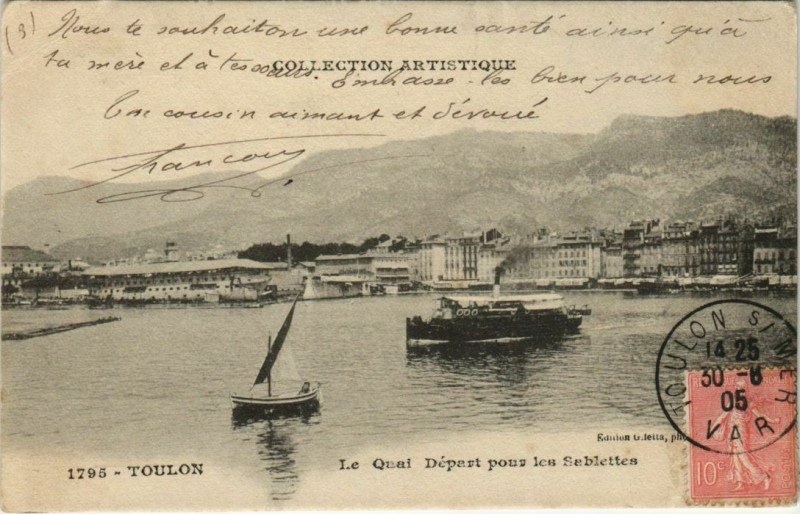 (3) Nous te souhaiton une bonne santé ainsi qu'à
ta mère et à tes soeurs. Embrasse-les bien pour nous
COLLECTION ARTISTIQUE
Ton cousin aimant et dévoué
Edition Giletta, phot
TOULON S/MER
14 25
30 -6
05
VAR
10c
1795 - TOULON
Le Quai Départ pour les Sablettes